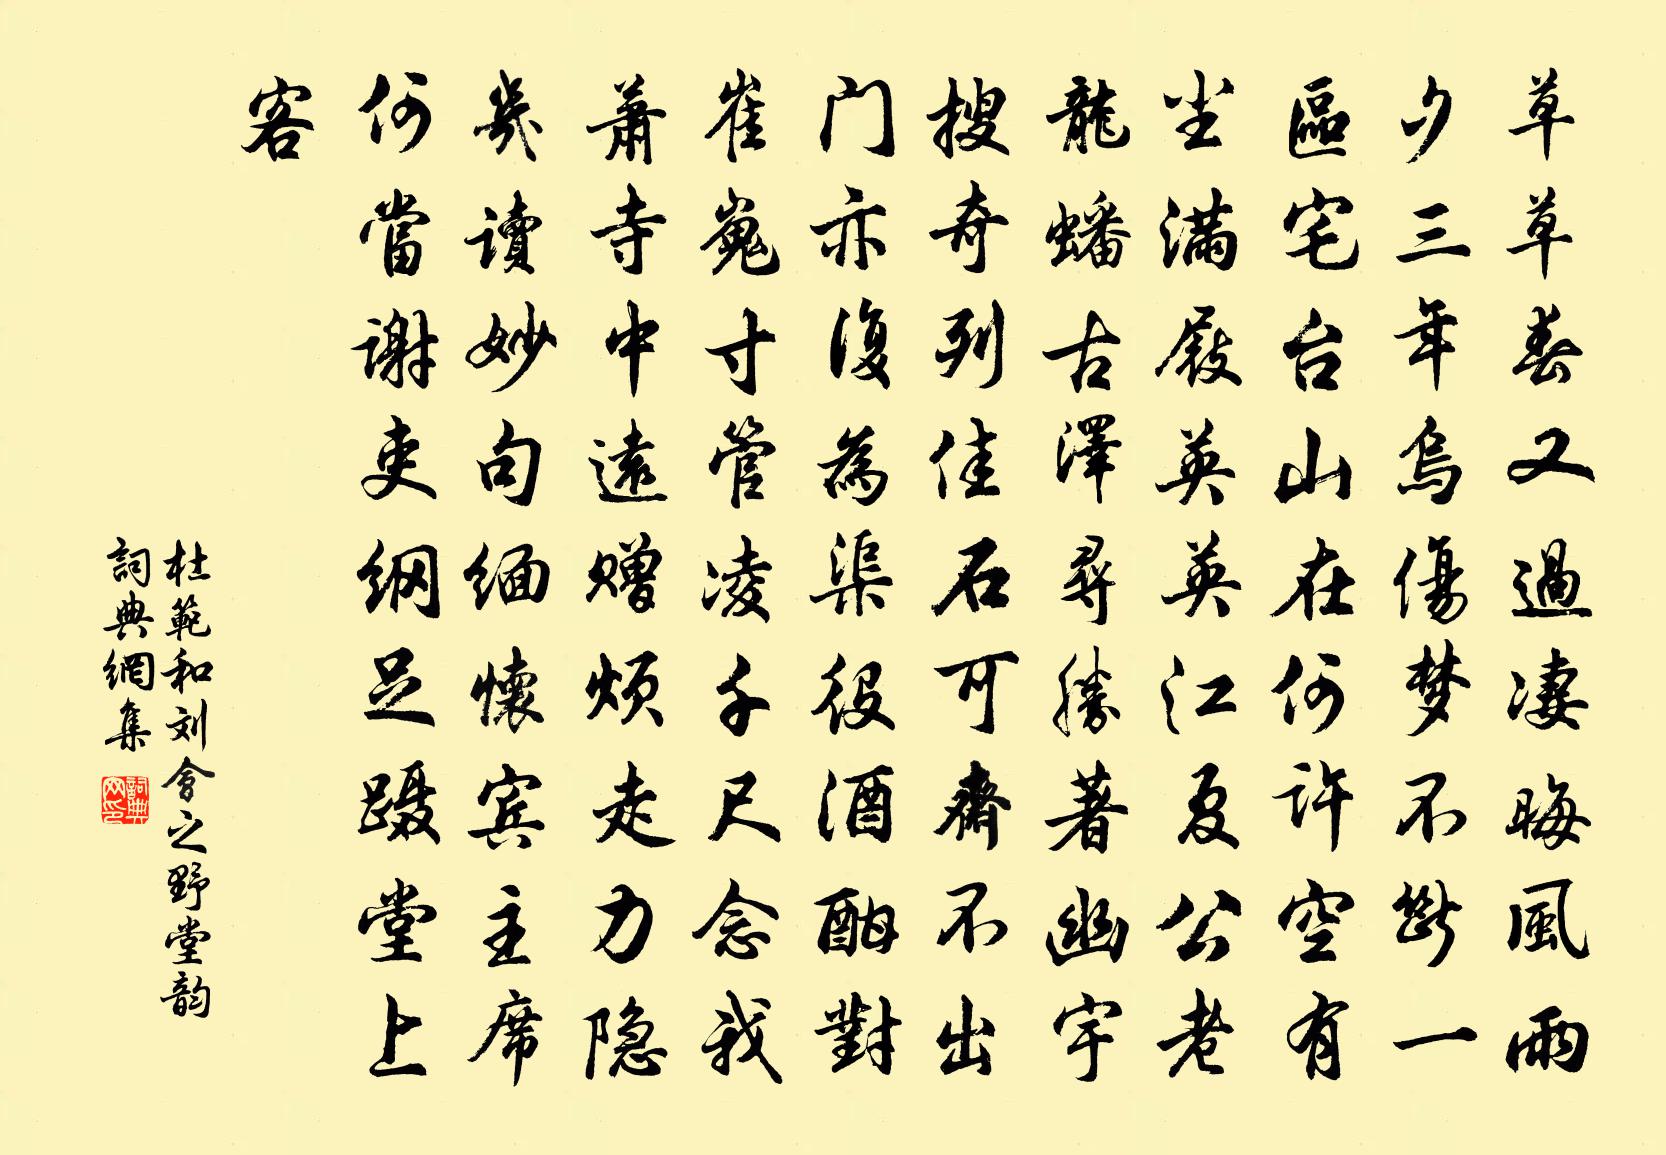 草草春又過凄晦風雨
夕三年烏傷梦不斷一
區宅台山在何許空有
尘滿屐英英江夏公老
龍蟠古澤尋勝著幽宇
搜奇列佳石可齋不出
门亦復為渠役酒酣對
崔嵬寸管凌千尺念我
蕭寺中遠赠烦走力隐
幾讀妙句缅懷宾主席
何當谢吏纲足蹑堂上
客
杜範和刘會之野堂韵
詞典網集
詞典网印